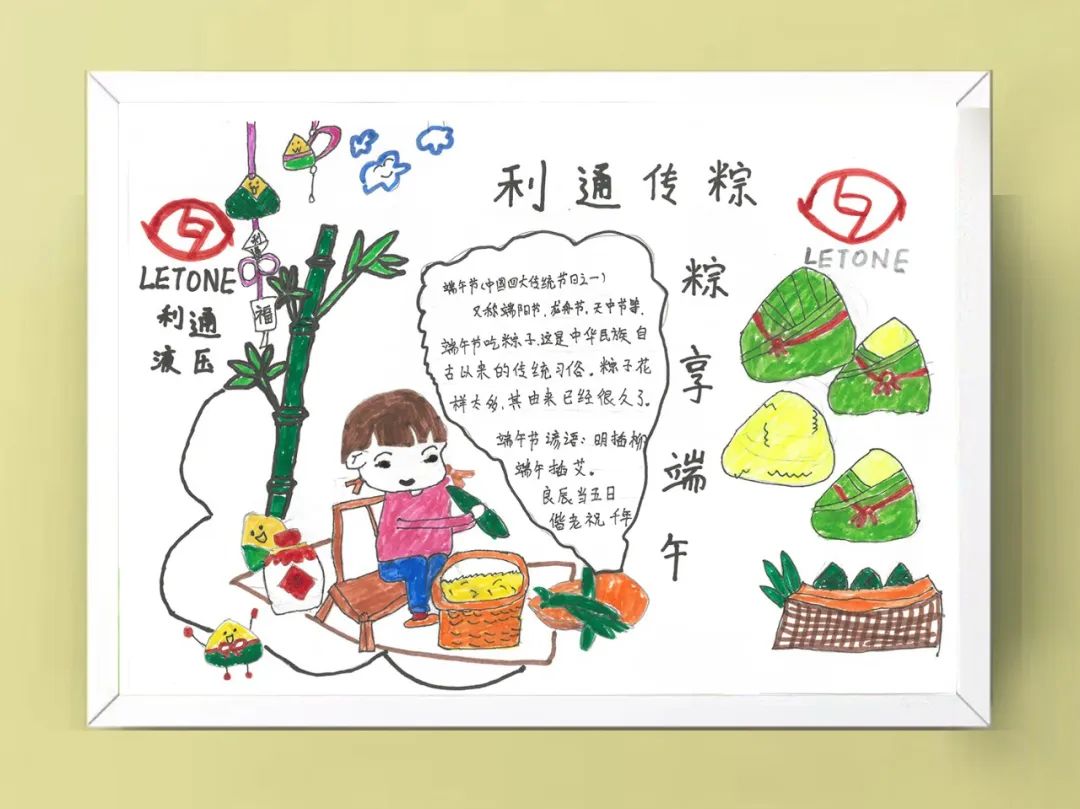 利通传粽
LETONE
利通
液压
福
LETONE
粽享端午
端午节(中国四大传统节日之一)
又称端阳节、龙舟节、天中节等.
端午节吃粽子,这是中华民族自
古以来的传统习俗。粽子花
样太多,其由来已经很久了。
端午节谚语:明插柳
端午插艾。
良辰当五日
偕老祝千年